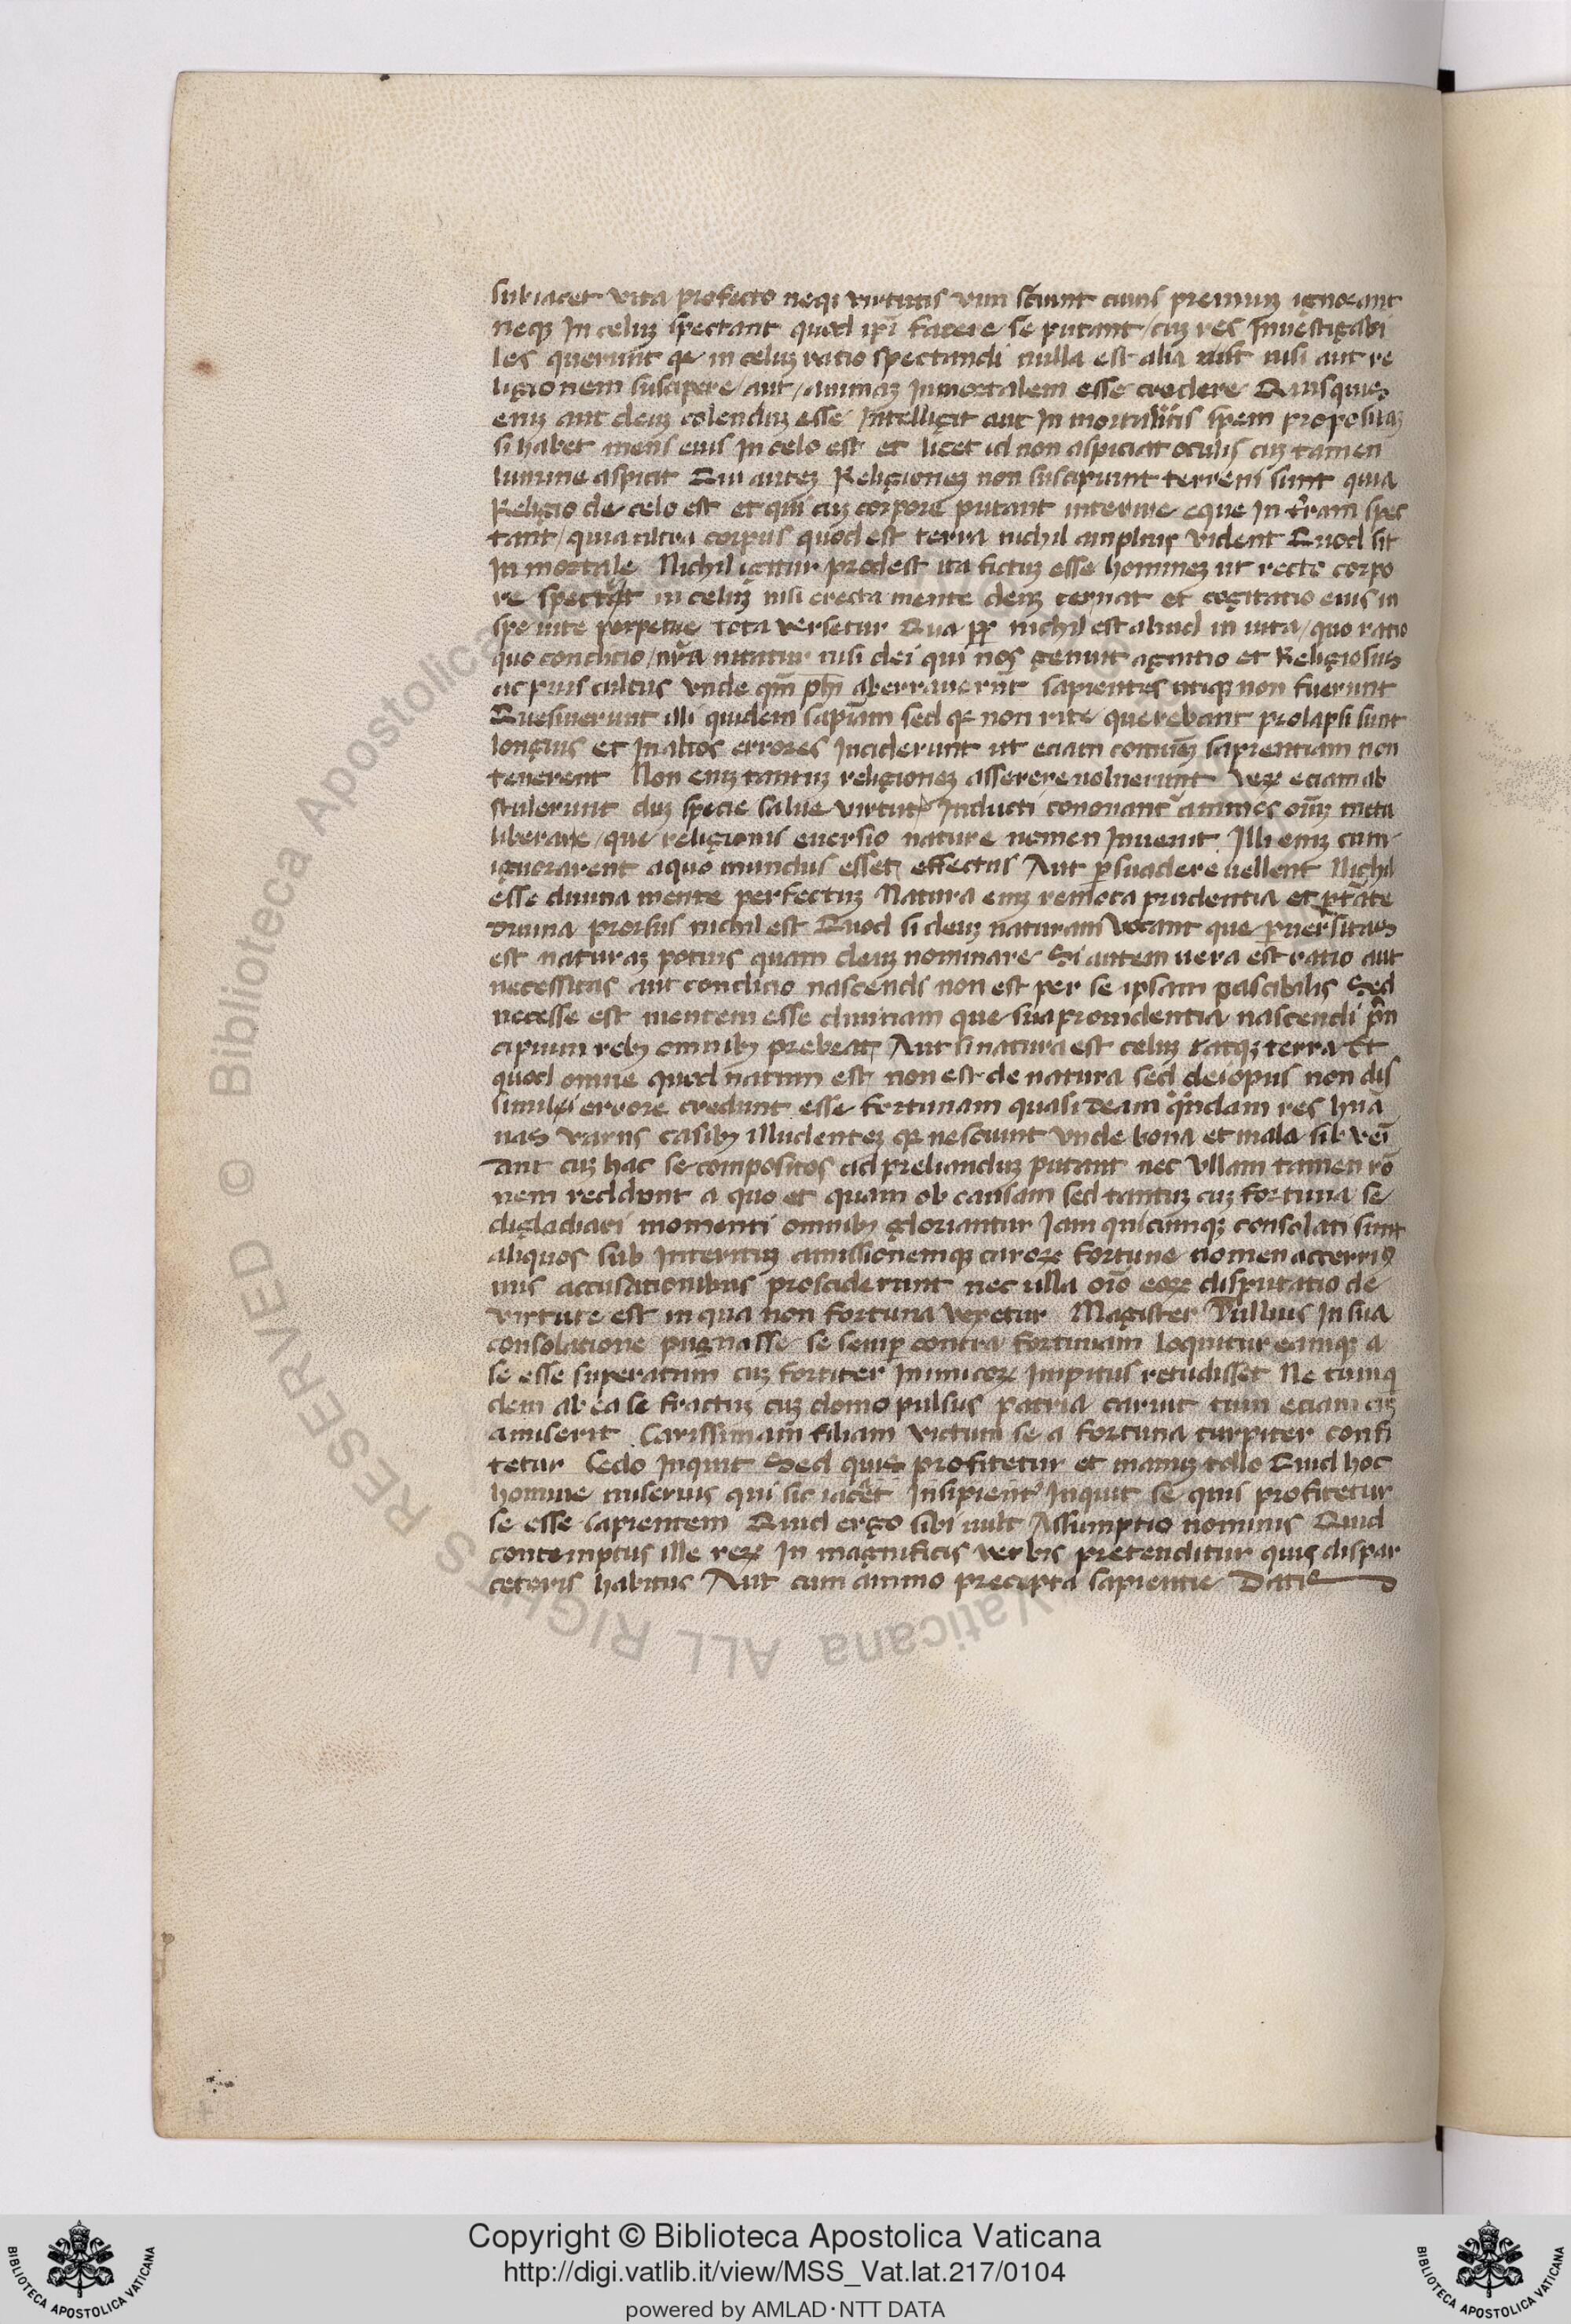 subiacet vita profecto neqꝫ virtutis vim sciunt cuius premiuꝫ ignorant
neqꝫ In celuꝫ spectant quod ip̄i facere se putant / cuꝫ res Investigabi
les querunt qꝛ in celuꝫ ratio spectandi nulla est alia nisi aut re
ligionem suscipere / aut / animaꝫ Inmortalem esse credere Quisquis
eniꝫ aut deuꝫ colenduꝫ esse Intelligit aut In mortalitatis spem propositaꝫ
si habet mens eius In celo est et licet id non aspiciat oculis cuꝫ tamen
lumine aspicit Qui auteꝫ Religioneꝫ non suscipiunt terreni sunt quia
Religio de celo est et qui cuꝫ corpore putant interire eque In tr̄ram spec
tant / quia ultra corpus quod est terra nichil amplius vident Quod sit
In mortale Nichil igitur prodest ita fictuꝫ esse homineꝫ ut recto corpo
re spectet in celuꝫ nisi erecta mente deuꝫ cernat et cogitatio eius in
spe uite perpetue tota versetur Qua pp̄ nichil est aliud in uita / quo ratio
quo condicio / nr̄a nitatur nisi dei qui nos genuit agnitio et Religiosus
ac pius cultus vnde qm̄ ph̄i aberrauerūt sapientes utiqꝫ non fuerunt
Quesiuerunt illi quidem sapiam̄ sed qꝛ non rite querebant prolapsi sunt
longius et In altos errores Inciderunt ut eciam comuneꝫ sapientiam non
tenerent Non eniꝫ tantuꝫ religioneꝫ asserere noluerunt Veꝝ eciam ab
stulerunt duꝫ specie false virtutis Inducti conant᷒ animos oīuꝫ metu
liberare / que religionis euersio nature nomen Inuenit Illi eniꝫ cum
ignorarent a quo mundus esset effectus Aut p̱suadere uellent Nichil
esse diuina mente perfectuꝫ Natura eniꝫ remota prudentia et pt̄ate
Diuina prorsus nichil est Quod si deuꝫ naturam vocant que p̱uersitas
est naturaꝫ potius quam deuꝫ nominare Si autem uera est ratio aut
necessitas aut condicio nascendi non est per se ipsam pascibilis Sed
necesse est mentem esse diuinam que sua prouidentia nascendi p̄n
cipium rebꝫ omnibꝫ prebeat Aut si natura est celuꝫ ratqꝫ terra Et
quod omne quod natum est non est de natura sed dei opus non dis
simili errore credunt esse fortunam quasi deam qͣndam res huā
nas variis casibꝫ illudenteꝫ qꝛ nesciunt vnde bona et mala sib vei
ant cuꝫ hac se compositos ad preliunduꝫ putant nec vllam tamen rō
nem reddunt a quo et quam ob causam sed tantuꝫ cuꝫ fortuna se
digladiari momenti omnibꝫ gloriantur Iam quicumqꝫ consolati sunt
aliquos sub Interituꝫ amissionemqꝫ caroꝝ fortune nomen acerri
mis accusationibus prosciderunt nec ulla oīo eoꝝ disputatio de
virtute est in qua non fortuna vexetur Magister Tullius In sua
consolatione pugnasse se semp̱ contra fortunam loquitur eamqꝫ a
se esse superatam cuꝫ fortiter Inimicoꝝ Impitus retudisset Ne tumq
dem ab ea se fractuꝫ cuꝫ domo pulsus patria caruit tum eciam cuꝫ
amiserit Carissimam filiam victum se a fortuna turpiter confi
tetur Cedo Inquit Sed quis profitetur et manuꝫ tollo Quid hoc
homine miserius qui sic iacet Insipient᷒ Inquit se quis profitetur
se esse sapientem Quid ergo sibi uult Assumptio nominis Quid
contemptus ille reꝝ In magnificis verbis pretenditur quis dispar
ceteris habitus Aut cum animo precepta sapientie Datis
Copyright © Biblioteca Apostolica Vaticana
http://digi.vatlib.it/view/MSS_Vat.lat.217/0104
powered by AMLAD·NTT DATA
© Biblioteca Apostolica Vaticana ALL RIGHTS RESERVED
BIBLIOTECA APOSTOLICA VATICANA
BIBLIOTECA APOSTOLICA VATICANA